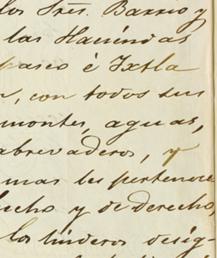 los Sres. Barrio y
las Haciendas
pasco é Ixtla
con todos sus
montes, aguas,
abrevaderos, y
mas les pertenece
hecho y de derecho
los linderos desig